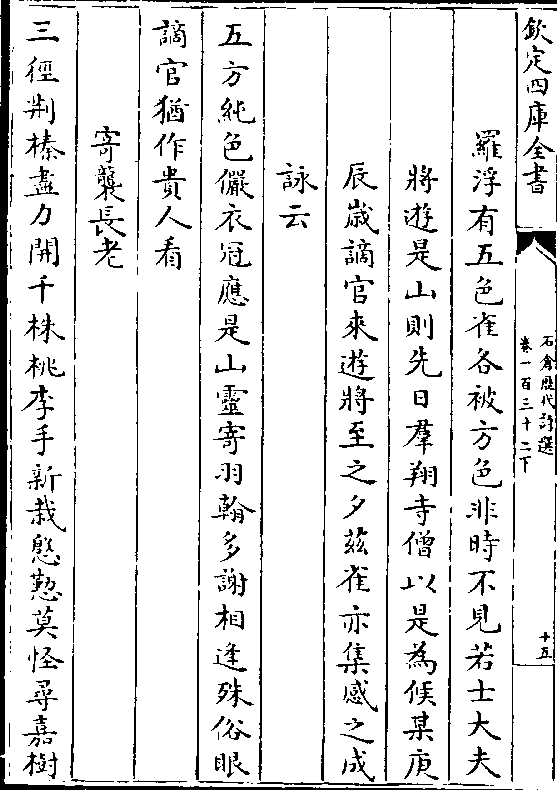 欽定四庫全書
石倉歷代詩選
卷一百三十二下
十五
羅浮有五色雀各被方色非時不見若士大夫
將遊是山則先日羣翔寺僧以是為候某庚
辰嵗謫官來遊將至之夕茲雀亦集感之成
詠云
五方純色儼衣冠應是山靈寄羽翰多謝相逢殊俗眼
謫官猶作貴人看
寄龔長老
三徑荆榛盡力開千株桃李手新栽慇懃莫怪尋嘉樹